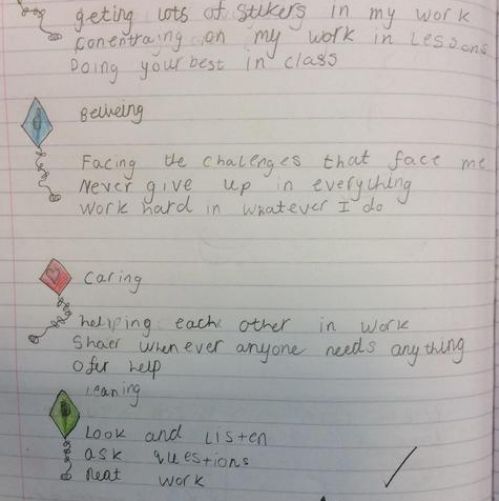 geting lots of stikers in my work
conentraing on my work in Lessons
Doing your best in class
Beliveing
Facing the chalenges that face me
Never give up in everything
Work hard in whatever I do
Caring
helping each other in work
Shaer when ever anyone needs anything
Ofer help
Leaning
Look and Listen
ask questions
neat work